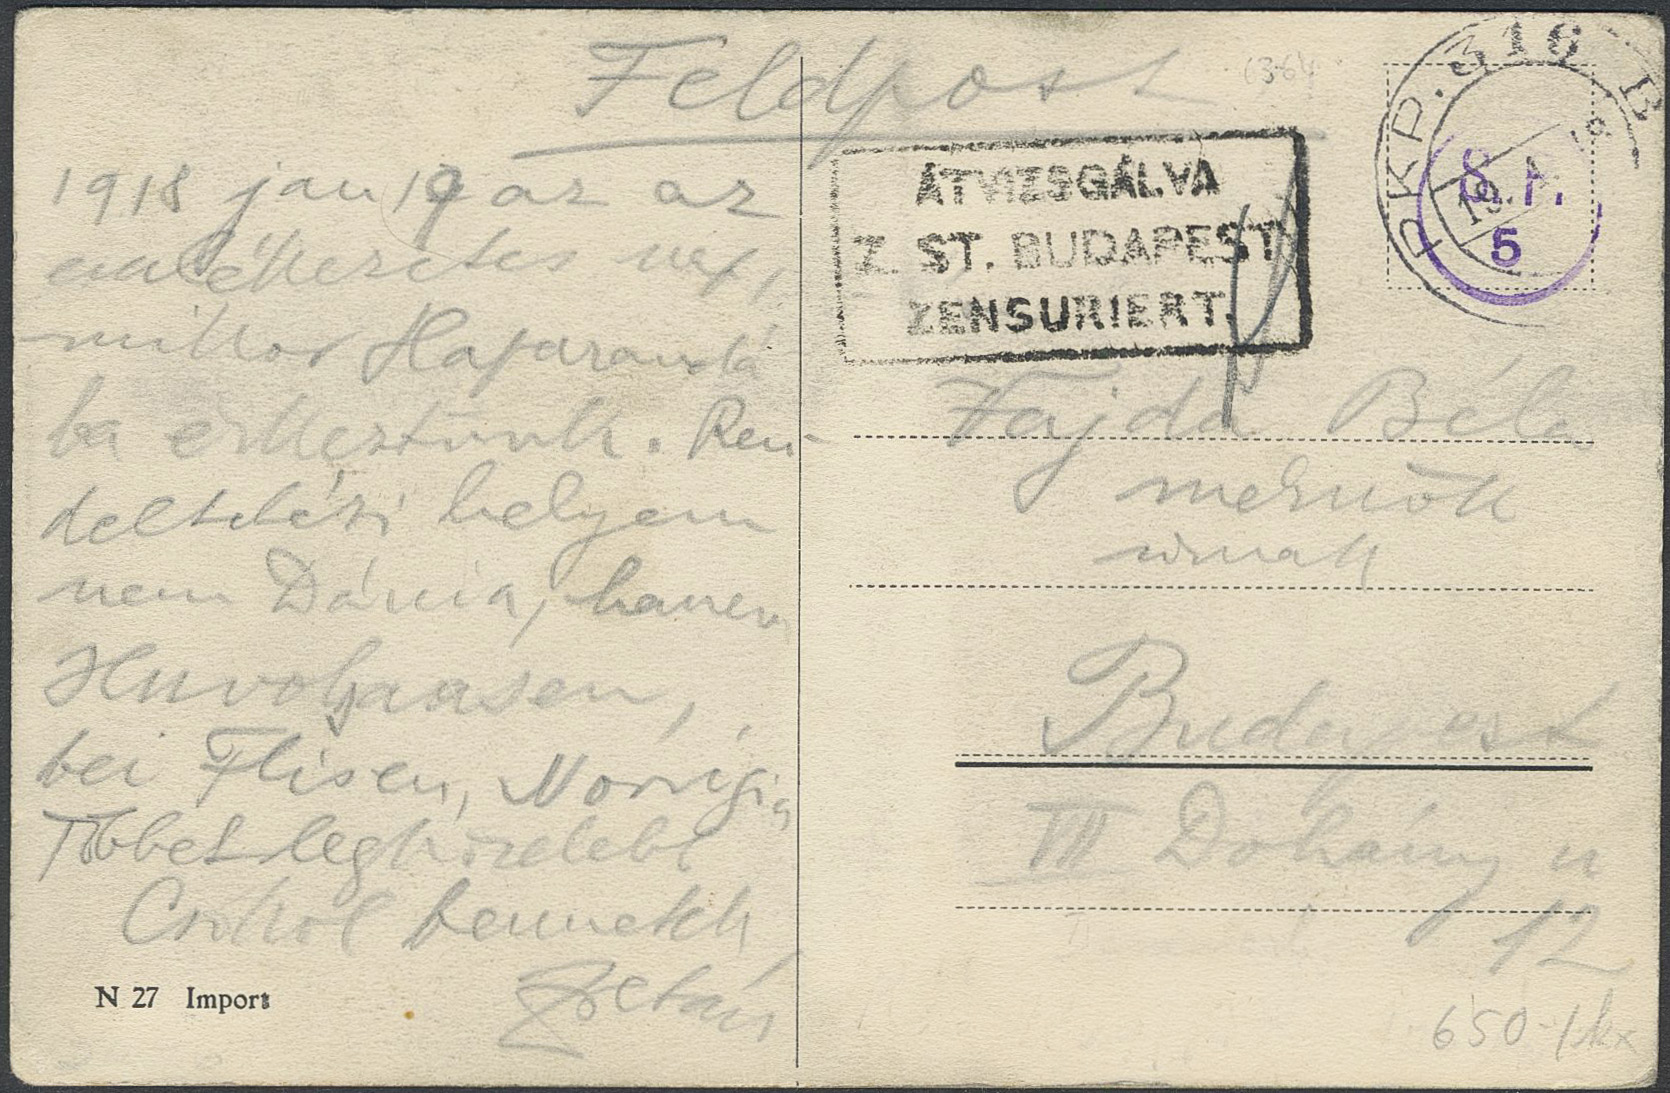 Feldpost
1918 jan 19 az az
emlékezetes nap,
mikor Haparandá
ba érkeztünk. Ren-
deltetési helyem
nem Dánia, hanem
bei Flisen, Norvégia
Többet legközelebb
Csókol bennetek
Zoltán
N 27 Import
(364
ÁTVIZSGÁLVA
Z. ST. BUDAPEST
ZENSURIERT.
PKP. 316 B
5
Vajda Béla
mérnök
úrnak
Budapest
VII Dohány u
12
650